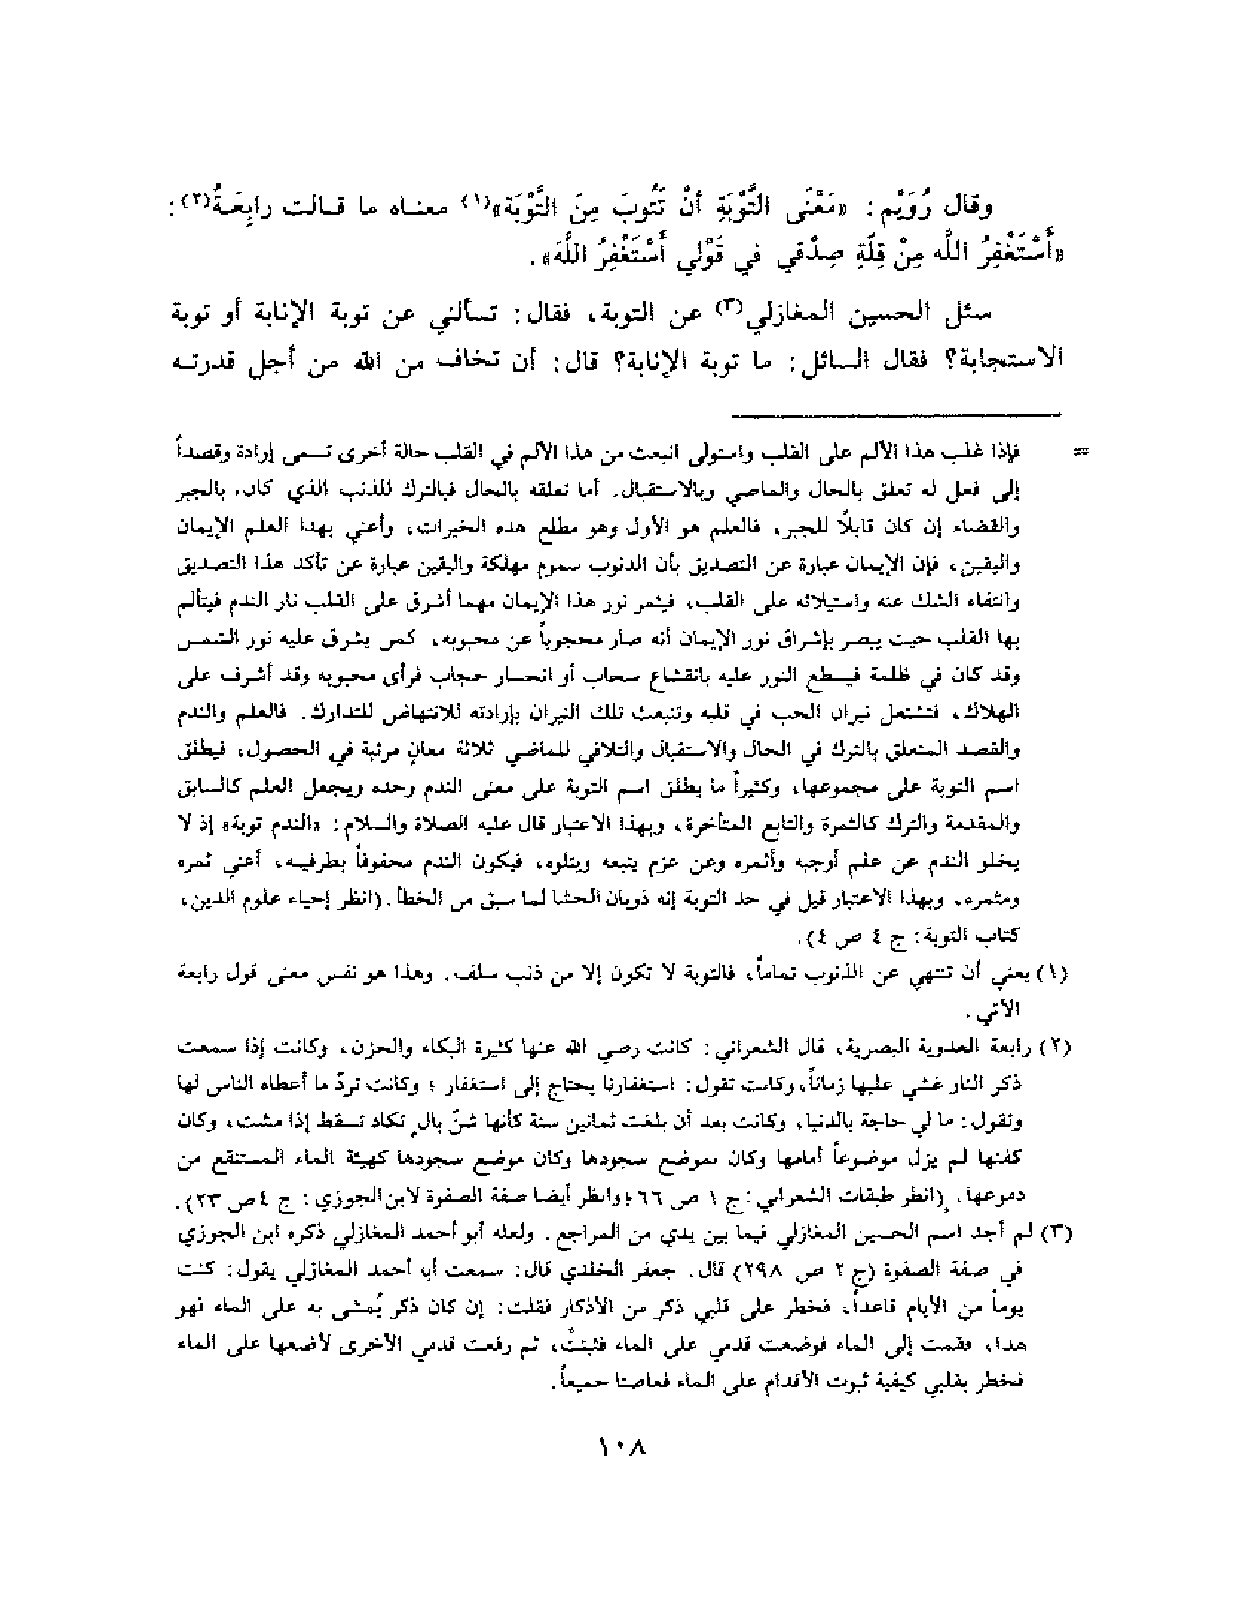 وقال رُوَيْم : «مَعْنَى التَّوْبَةِ أَنْ تَتُوبَ مِنَ التَّوْبَة»(١) معناه ما قالت رابِعَةُ(٢) :
«أَسْتَغْفِرُ اللَّه مِنْ قِلَّةِ صِدْقي في قَوْلي أَسْتَغْفِرُ اللَّهَ» .
سئل الحسين المغازلي(٣) عن التوبة ، فقال : تسألني عن توبة الإنابة أو توبة
الاستجابة؟ فقال السائل : ما توبة الإنابة؟ قال : أن تخاف من الله من أجل قدرته
= فإذا غلب هذا الألم على القلب واستولى انبعث من هذا الألم في القلب حالة أخرى تسمى إرادة وقصداً
إلى فعل له تعلق بالحال والماضي وبالاستقبال. أما تعلقه بالحال فبالترك للذنب الذي كان، بالجبر
والقضاء إن كان قابلاً للجبر، فالعلم هو الأول وهو مطلع هذه الخيرات، وأعني بهذا العلم الإيمان
واليقين، فإن الإيمان عبارة عن التصديق بأن الذنوب سموم مهلكة واليقين عبارة عن تأكد هذا التصديق
وانتفاء الشك عنه واستيلائه على القلب، فيثمر نور هذا الإيمان مهما أشرق على القلب نار الندم فيتألم
بها القلب حيث يبصر بإشراق نور الإيمان أنه صار محجوباً عن محبوبه، كمن يشرق عليه نور الشمس
وقد كان في ظلمة فيسطع النور عليه بانقشاع سحاب أو انحسار حجاب فرأى محبوبه وقد أشرف على
الهلاك، فتشتعل نيران الحب في قلبه وتنبعث تلك النيران بإرادته للانتهاض للتدارك. فالعلم والندم
والقصد المتعلق بالترك في الحال والاستقبال والتلافي للماضي ثلاثة معانٍ مرتبة في الحصول، فيطلق
اسم التوبة على مجموعها، وكثيراً ما يطلق اسم التوبة على معنى الندم وحده ويجعل العلم كالسابق
والمقدمة والترك كالثمرة والتابع المتأخرة، وبهذا الاعتبار قال عليه الصلاة والسلام: «الندم توبة» إذ لا
يخلو الندم عن علم أوجبه وأثمره وعن عزم يتبعه ويتلوه، فيكون الندم محفوفاً بطرفيه، أعني ثمره
ومثمره، وبهذا الاعتبار قيل في حد التوبة إنه ذوبان الحشا لما سبق من الخطأ. (انظر إحياء علوم الدين،
كتاب التوبة: ج ٤ ص ٤).
(١) يعني أن تنتهي عن الذنوب تماماً، فالتوبة لا تكون إلا من ذنب سلف. وهذا هو نفس معنى قول رابعة
الآتي .
(٢) رابعة العدوية البصرية، قال الشعراني: كانت رضي الله عنها كثيرة البكاء والحزن، وكانت إذا سمعت
ذكر النار غشي عليها زماناً، وكانت تقول: استغفارنا يحتاج إلى استغفار؛ وكانت تردّ ما أعطاه الناس لها
وتقول: ما لي حاجة بالدنيا، وكانت بعد أن بلغت ثمانين سنة كأنها شنّ بالٍ تكاد تسقط إذا مشت، وكان
كفنها لم يزل موضوعاً أمامها وكان بموضع سجودها وكان موضع سجودها كهيئة الماء المستنقع من
دموعها، (انظر طبقات الشعراني: ج ١ ص ٦٦؛ وانظر أيضاً صفة الصفوة لابن الجوزي: ج ٤ ص ٢٣).
(٣) لم أجد اسم الحسين المغازلي فيما بين يدي من المراجع. ولعله أبو أحمد المغازلي ذكره ابن الجوزي
في صفة الصفوة (ج ٢ ص ٢٩٨) قال. جعفر الخلدي قال: سمعت أبا أحمد المغازلي يقول: كنت
يوماً من الأيام قاعداً، فخطر على قلبي ذكر من الأذكار فقلت: إن كان ذكر يُمشى به على الماء فهو
هذا، فقمت إلى الماء فوضعت قدمي على الماء فثبتتْ، ثم رفعت قدمي الأخرى لأضعها على الماء
فخطر بقلبي كيفية ثبوت الأقدام على الماء فغاصتا جميعاً.
١٠٨